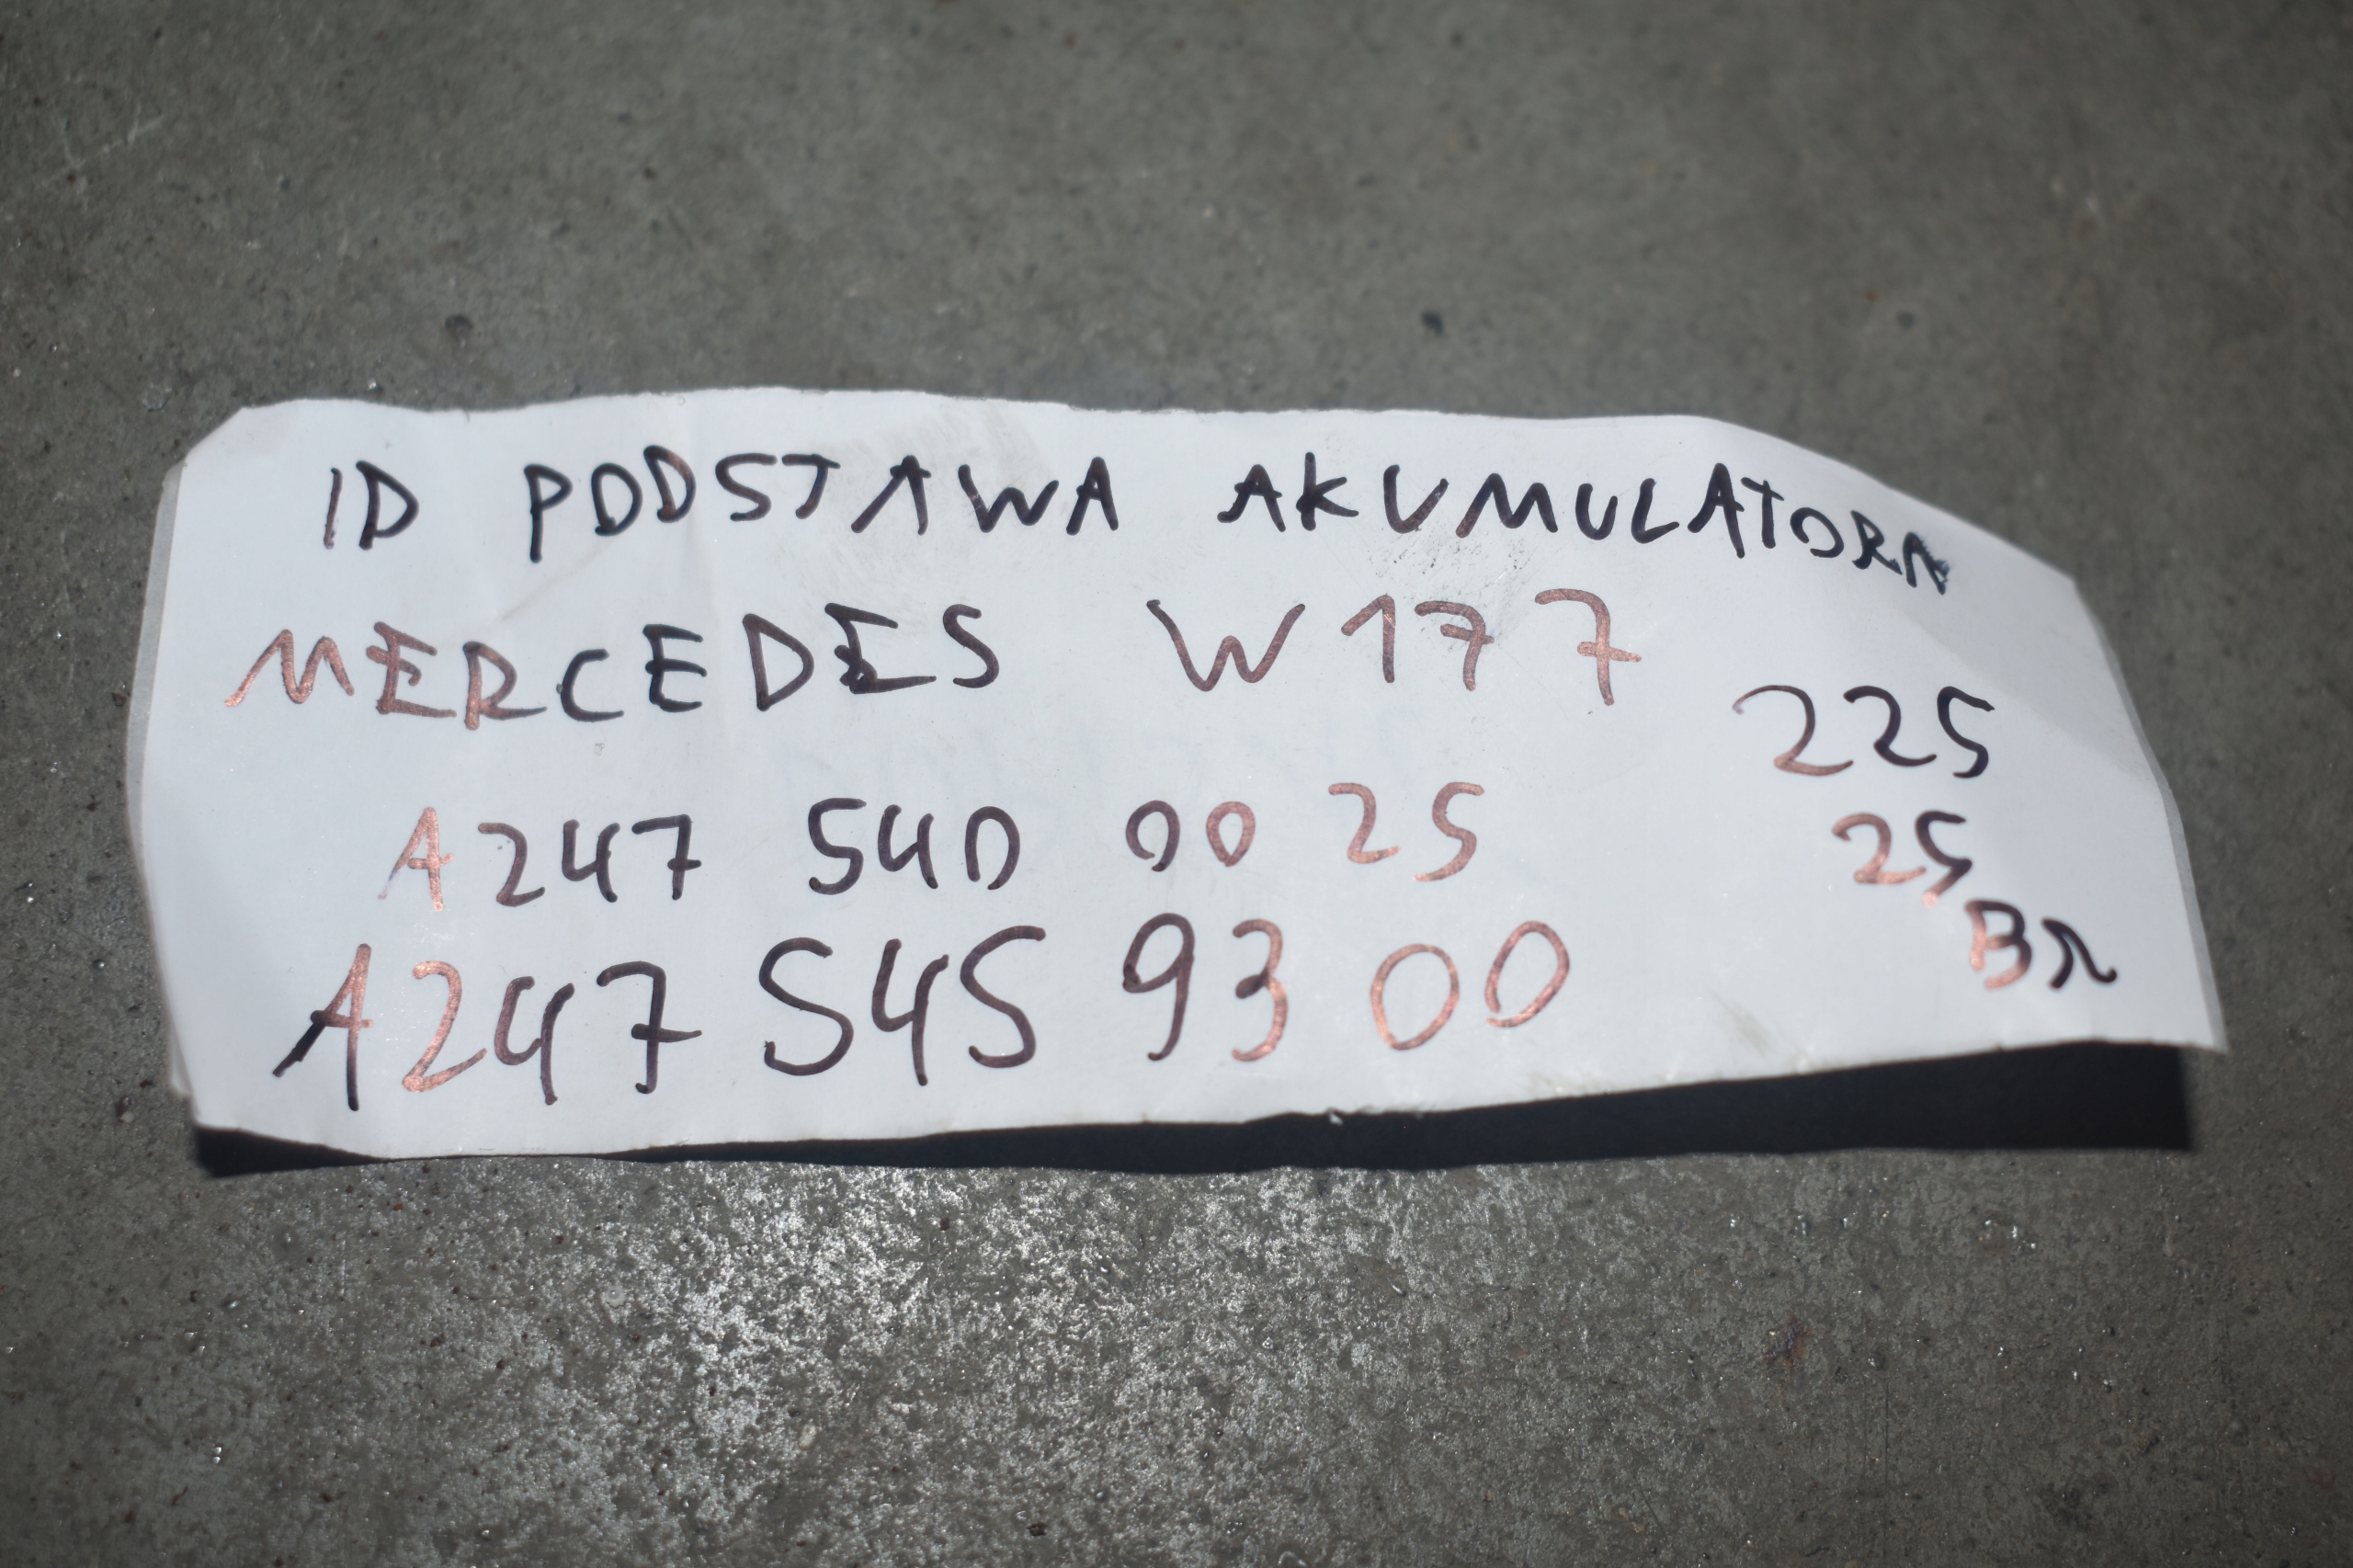 ID PODSTAWA AKUMULATORA
MERCEDES W177
225
A247 540 00 25
25
BR
A247 545 93 00